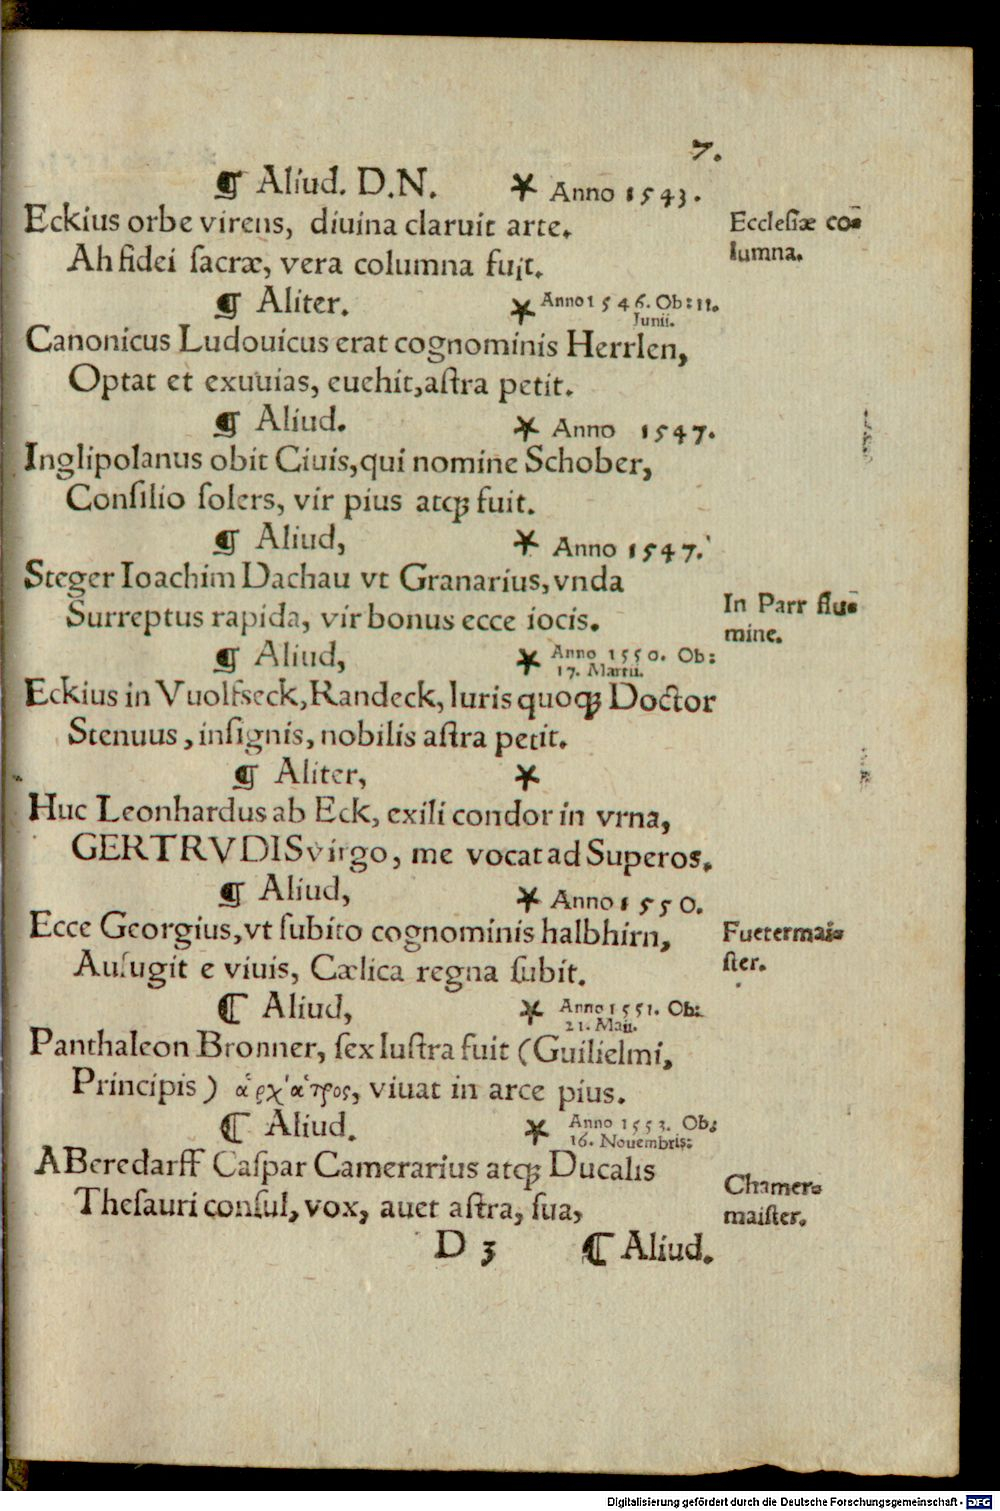 7.
¶ Aliud. D.N. * Anno 1543.
Eckius orbe virens, diuina claruit arte.
Ecclesiæ co⸗
lumna.
Ah fidei sacræ, vera columna fuit.
¶ Aliter. * Anno 1546. Ob: 11.
Junii.
Canonicus Ludouicus erat cognominis Herrlen,
Optat et exuuias, euehit, astra petit.
¶ Aliud. * Anno 1547.
Inglipolanus obit Ciuis, qui nomine Schober,
Consilio solers, vir pius atqꝫ fuit.
¶ Aliud, * Anno 1547.
Steger Ioachim Dachau vt Granarius, vnda
In Parr flu⸗
mine.
Surreptus rapida, vir bonus ecce iocis.
¶ Aliud, * Anno 1550. Ob:
17. Martii.
Eckius in Vuolfseck, Randeck, Iuris quoqꝫ Doctor
Stenuus, insignis, nobilis astra petit.
¶ Aliter, *
Huc Leonhardus ab Eck, exili condor in vrna,
GERTRVDIS virgo, me vocat ad Superos.
¶ Aliud, * Anno 1550.
Ecce Georgius, vt subito cognominis halbhirn,
Fuetermai⸗
ster.
Aufugit e viuis, Cælica regna subit.
¶ Aliud, * Anno 1551. Ob:
21. Maii.
Panthaleon Bronner, sex lustra fuit (Guilielmi,
Principis) ἀρχίατρος, viuat in arce pius.
¶ Aliud. * Anno 1553. Ob:
16. Nouembris:
A Beredarff Caspar Camerarius atqꝫ Ducalis
Chamer⸗
maister.
Thesauri consul, vox, auet astra, sua,
D 3 ¶ Aliud.
Digitalisierung gefördert durch die Deutsche Forschungsgemeinschaft - DFG